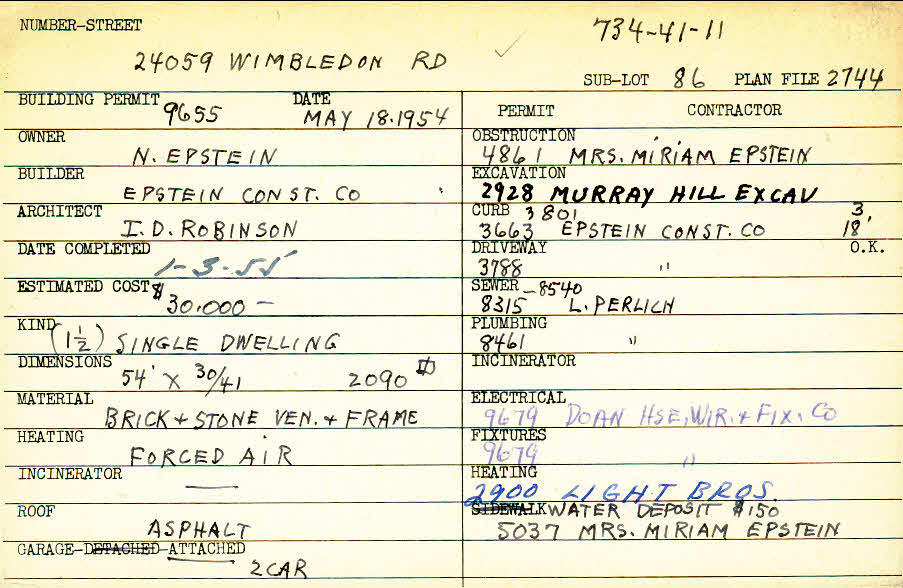 NUMBER-STREET
734-41-11
24059 WIMBLEDON RD
SUB-LOT 86 PLAN FILE 2744
BUILDING PERMIT 9655 DATE MAY 18.1954
OWNER N. EPSTEIN
BUILDER EPSTEIN CONST. CO
ARCHITECT I.D. ROBINSON
DATE COMPLETED 1-3-55
ESTIMATED COST $30.000 —
KIND (1½) SINGLE DWELLING
DIMENSIONS 54' X 30/41 2090
MATERIAL BRICK + STONE VEN. + FRAME
HEATING FORCED AIR
INCINERATOR —
ROOF ASPHALT
GARAGE-DETACHED-ATTACHED
2 CAR
PERMIT CONTRACTOR
OBSTRUCTION
4861 MRS. MIRIAM EPSTEIN
EXCAVATION
2928 MURRAY HILL EXCAV
CURB 3801 3,
3663 EPSTEIN CONST. CO 18'
DRIVEWAY O.K.
3788 "
SEWER - 8540
8315 L. PERLICH
PLUMBING
8461 "
INCINERATOR
ELECTRICAL
9679 DOAN HSE, WIR. + FIX. CO
FIXTURES
9679 "
HEATING
2900 LIGHT BROS.
SIDEWALK WATER DEPOSIT $150
5037 MRS. MIRIAM EPSTEIN